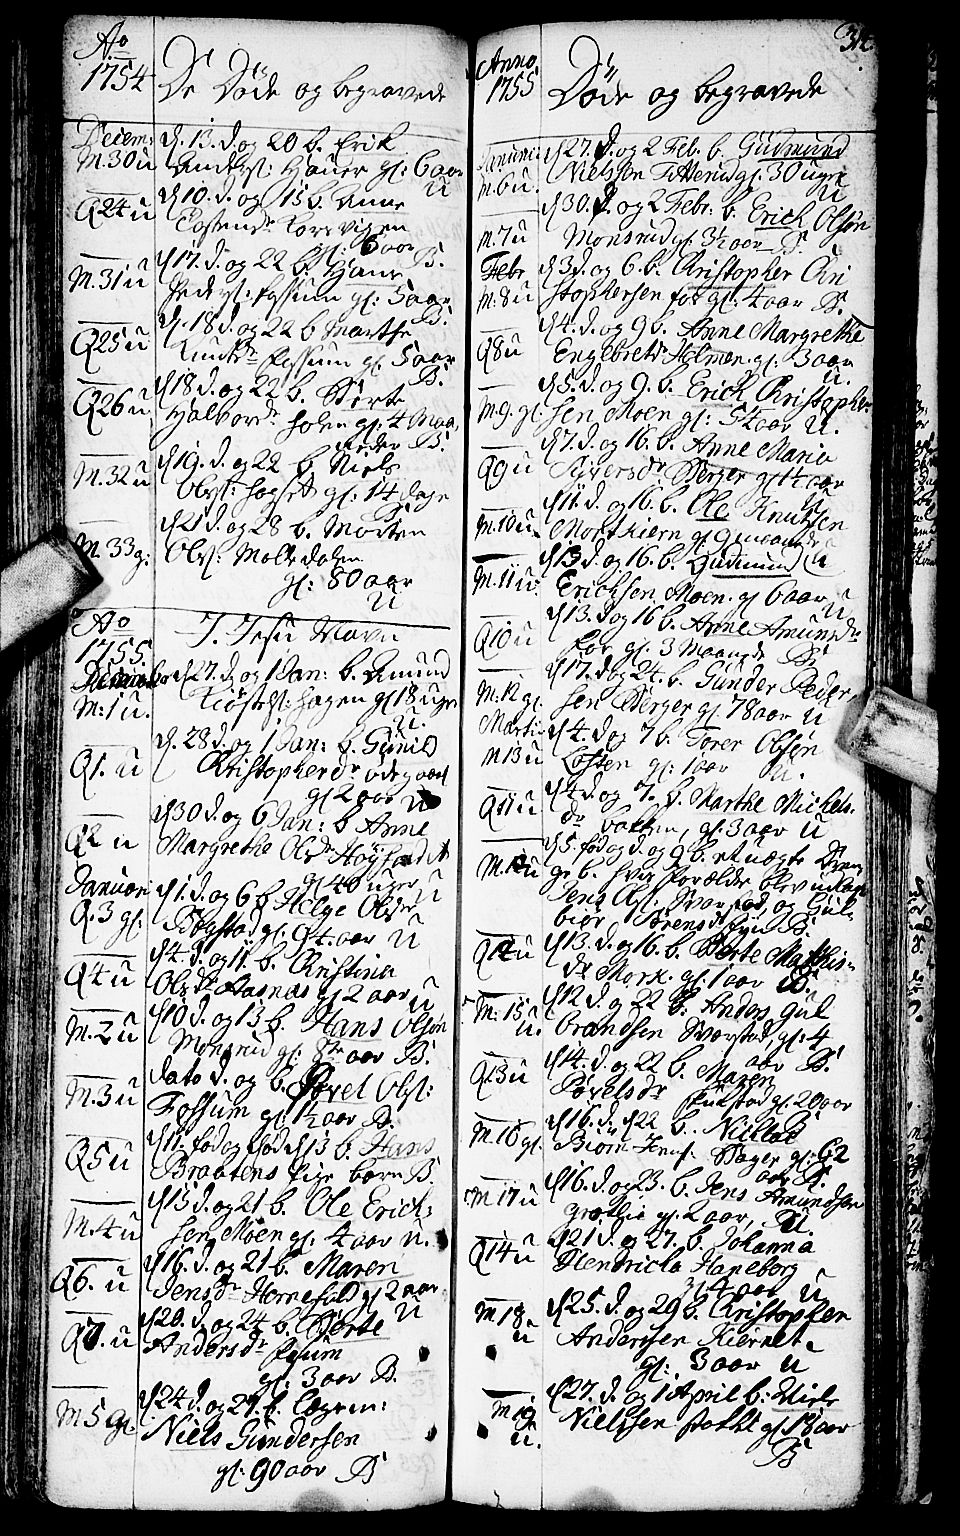 Ao
1754
De Döde og begravede
Decem:
M. 30 u
d. 13. d. og 20 b. Erik
Anderss: Hauer gl: 6 aar
u
Q 24 u
d 10. d. og 15 b. Anne
Torsvigen
gl: 6 aar
B.
M. 31 u
d 17. d. og 22 b. Hans
Pederss: Fossum gl: 5 aar
B.
Q 25 u
d. 18 d. og 22 b Marthe
Knudsdr Fossum gl. 5 aar
B.
Q 26 u
d 18 d. og 22 b. Berte
Halvordr Holen gl: 4 Maa,
neder B.
M. 32 u
d 19. d. og 22 b Niels
Olss: gl: 14 dage
M 33 g:
d 21 d. og 28 b. Morten
Olss: Molledalen
gl: 80 aar
u
Ao
1755.
J. Jesu Navn
December
M: 1 u.
d 27. d. og 1 Jan: b. Amund
hagen gl 18 uger
u.
Q 1. u
d. 28 d. og 1 Jan: b. Gunild
Kristopherdr ödegaard
gl 2 aar u
Q 2 u
d 30 d. og 6 Jan: b Anne
Margrethe Olsdr
gl 40 uger
u
Januari
Q. 3 gl.
d 1 d. og 6 b Helge Olsdr
Bogstad gl. 94. aar u
Q 4 u
d 4. d. og 11 b. Kristina
Olsdr Aasnæs gl 2 aar u
M. 2 u
d 10 d. og 13 b. Hans Olsön
Monsrud gl: 8 aar B.
M. 3 u
dato d. og b. Povel Olss:
Fossum gl 1½ aar B.
Q 5 u
d 11. föd og död d 13 b. Hans
Braatens Pige barn B.
M. 4 u
d 15 d. og 21 b. Ole Erich:
sen Moen gl: 4 aar u.
Q 6. u
d 16. d. og 21 b. Maren
Jensdr gl 2 aar
u
Q 7. u
d 20. d. og 24 b. Berte
Andersdr Fossum
gl: 3 aar B.
M 5 gl.
d 24 d. og 29. b.
Niels Gundersen
gl: 90 aar B
Anno
1755
Döde og begravede
Januarii
M. 6 u.
d 27. d. og 2 Febr. b. Gudmund
Nielssön gl. 30 uger
u
M. 7 u
d 30. d. og 2 Febr: b. Erich Olsön
Monsrud gl. 3½ aar B.
Febr
M: 8 u
d 3 d. og 6. b. Kristopher Kri
stophersen foss gl: 4 aar B.
Q 8 u
d 4. d. og 9 b. Anne Margrethe
Engebretsdr Holmen gl: 3 aar
u.
M. 9. gl.
d 5. d. og 9. b. Erich Kristopher
sen Moen gl: 54 aar u.
Q 9 u
d 7. d. og 16. b. Anne Maria
Siversdr Berger gl 1½ aar
u
M. 10 u
d 11. d. og 16. b. Ole Knutsen
gl 9 maaneder
u
M. 11 u
d 13 d. og 16. b. Gudmund
Ericksen Moen. gl 6 aar u
Q 10 u
d 13. d. og 16 b. Anne Amundsdr
Foss gl. 3 Maaneder B.
M. 12 gl
d 17. d og 24. b. Gunder Peder
sen Berger gl. 78 aar u
Marti
M 13 u
d 4. d. og 7 b. Torer Olsön
Lofsten gl: 1 aar u.
Q 11 u
d 4 d. og 7. b. Marthe Michels
dr gl: 3 aar u
M. 14 u
d 5. föd og d. og 9 b. et uægte Dren
ge b. hvis Forældre blev udlagt
Jens Olss. Svarstad, og Gul
biör Sörensdr B.
Q 12 u
d 13. d. og 16. b. Berte Mathis=
dr Mork gl: 1 aar B.
M: 15
u.
d 12 d. og 22 b: Anders Gul
brandsen Sværstad, gl: 4
aar B.
Q 13 u
d 14. d. og 22 b. Maren
Povelsdr gl. 20 aar
B
M. 16 gl.
d 16. d. d 22 b.
Biörn Knus: Hager gl: 62
aar B.
M 17 u
d 16. d. og 23. b. Jens Amundsön
gl 2 aar, u.
Q 14 u
d 21 d. og 27. b. Johanna
Hendricka Haneborg
gl 4 aar u
M 18
u
d 25. d. og 29 b. Kristopher
Andersen Kiernet.
gl: 3 aar u
M 19
u.
d 27. d. og 1 April b: Niels
Nielssen gl 18 aar
B